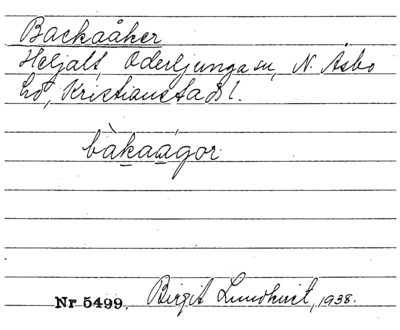 Backaåker
Heljalt, Oderljunga sn, N. Åsbo
hd, Kristianstads l.
bàkaágor
Nr 5499. Birgit Lundkvist, 1938.